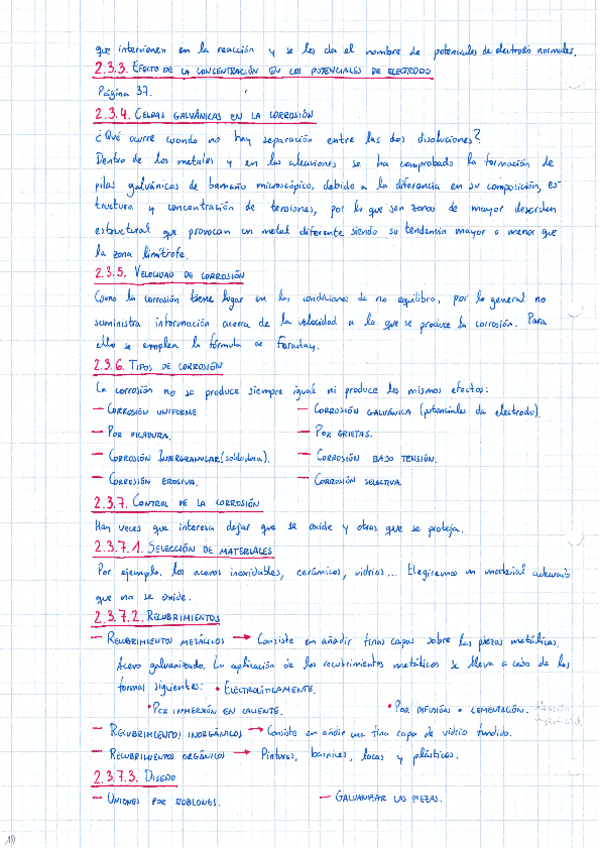 que intervienen en la reacción y se les da el nombre de potenciales de electrodo normales.
2.3.3. EFECTO DE LA CONCENTRACIÓN EN LOS POTENCIALES DE ELECTRODO
Página 37.
2.3.4. CELDAS GALVÁNICAS EN LA CORROSIÓN
¿Qué ocurre cuando no hay separación entre las dos disoluciones?
Dentro de los metales y en las aleaciones se ha comprobado la formación de
pilas galvánicas de tamaño microscópico, debido a la diferencia en su composición, es-
tructura y concentración de tensiones, por lo que son zonas de mayor desorden
estructural que provocan un metal diferente siendo su tendencia mayor o menor que
la zona limítrofe.
2.3.5. VELOCIDAD DE CORROSIÓN
Como la corrosión tiene lugar en las condiciones de no equilibro, por lo general no
suministra información acerca de la velocidad a la que se produce la corrosión. Para
ello se emplea la fórmula de Faraday.
2.3.6. TIPOS DE CORROSIÓN
La corrosión no se produce siempre igual ni produce los mismos efectos:
— CORROSIÓN UNIFORME. — CORROSIÓN GALVÁNICA (potenciales de electrodo).
— POR PICADURA. — POR GRIETAS.
— CORROSIÓN INTERGRANULAR (soldadura). — CORROSIÓN BAJO TENSIÓN.
— CORROSIÓN EROSIVA. — CORROSIÓN SELECTIVA
2.3.7. CONTROL DE LA CORROSIÓN
Hay veces que interesa dejar que se oxide y otras que se proteja.
2.3.7.1. SELECCIÓN DE MATERIALES
Por ejemplo. los aceros inoxidables, cerámicos, vidrios... Elegiremos un material adecuado
que no se oxide.
2.3.7.2. RECUBRIMIENTOS
— RECUBRIMIENTOS METÁLICOS → Consiste en añadir finas capas sobre las piezas metálicas.
Acero galvanizado. La aplicación de los recubrimientos metálicos se lleva a cabo de las
formas siguientes: • ELECTROLÍTICAMENTE.
• POR INMERSIÓN EN CALIENTE. • POR DIFUSIÓN o CEMENTACIÓN.
— RECUBRIMIENTOS INORGÁNICOS → Consiste en añdir una fina capa de vidrio fundido.
— RECUBRIMIENTOS ORGÁNICOS → Pinturas, barnices, lacas y plásticos.
2.3.7.3. DISEÑO
— UNIONES POR ROBLONES. — GALVANIZAR LAS PIEZAS.